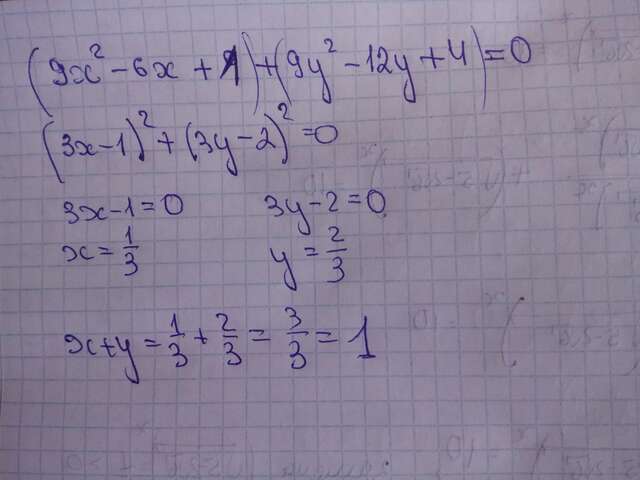 (9x² - 6x + 1) + (9y² - 12y + 4) = 0
(3x - 1)² + (3y - 2)² = 0
3x - 1 = 0 3y - 2 = 0
x = 1/3 y = 2/3
x + y = 1/3 + 2/3 = 3/3 = 1